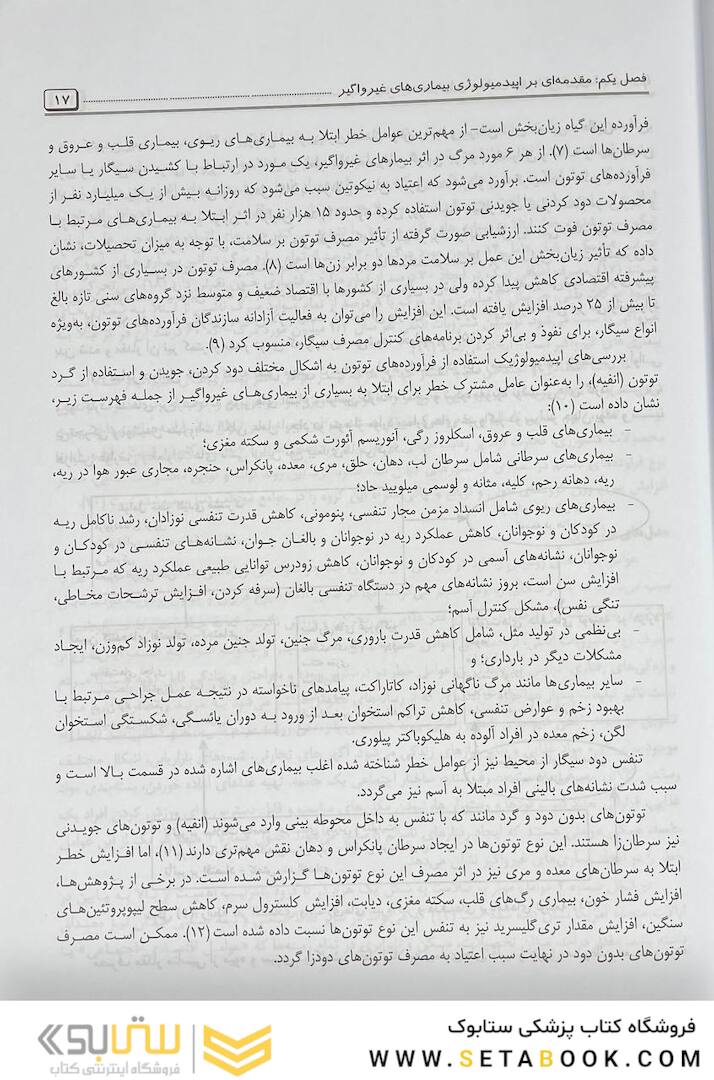 فصل یکم: مقدمه‌ای بر اپیدمیولوژی بیماری‌های غیرواگیر ........ ۱۷
فرآورده این گیاه زیان‌بخش است- از مهم‌ترین عوامل خطر ابتلا به بیماری‌های ریوی، بیماری قلب و عروق و
سرطان‌ها است (۷). از هر ۶ مورد مرگ در اثر بیمارهای غیرواگیر، یک مورد در ارتباط با کشیدن سیگار یا سایر
فرآورده‌های توتون است. برآورد می‌شود که اعتیاد به نیکوتین سبب می‌شود که روزانه بیش از یک میلیارد نفر از
محصولات دود کردنی یا جویدنی توتون استفاده کرده و حدود ۱۵ هزار نفر در اثر ابتلا به بیماری‌های مرتبط با
مصرف توتون فوت کنند. ارزشیابی صورت گرفته از تأثیر مصرف توتون بر سلامت، با توجه به میزان تحصیلات، نشان
داده که تأثیر زیان‌بخش این عمل بر سلامت مردها دو برابر زن‌ها است (۸). مصرف توتون در بسیاری از کشورهای
پیشرفته اقتصادی کاهش پیدا کرده ولی در بسیاری از کشورها با اقتصاد ضعیف و متوسط نزد گروه‌های سنی تازه بالغ
تا بیش از ۲۵ درصد افزایش یافته است. این افزایش را می‌توان به فعالیت آزادانه سازندگان فرآورده‌های توتون، به‌ویژه
انواع سیگار، برای نفوذ و بی‌اثر کردن برنامه‌های کنترل مصرف سیگار، منسوب کرد (۹).
بررسی‌های اپیدمیولوژیک استفاده از فرآورده‌های توتون به اشکال مختلف دود کردن، جویدن و استفاده از گرد
توتون (انفیه)، را به‌عنوان عامل مشترک خطر برای ابتلا به بسیاری از بیماری‌های غیرواگیر از جمله فهرست زیر،
نشان داده است (۱۰):
- بیماری‌های قلب و عروق، اسکلروز رگی، آنوریسم آئورت شکمی و سکته مغزی؛
- بیماری‌های سرطانی شامل سرطان لب، دهان، حلق، مری، معده، پانکراس، حنجره، مجاری عبور هوا در ریه،
ریه، دهانه رحم، کلیه، مثانه و لوسمی میلویید حاد؛
- بیماری‌های ریوی شامل انسداد مزمن مجار تنفسی، پنومونی، کاهش قدرت تنفسی نوزادان، رشد ناکامل ریه
در کودکان و نوجوانان، کاهش عملکرد ریه در نوجوانان و بالغان جوان، نشانه‌های تنفسی در کودکان و
نوجوانان، نشانه‌های آسمی در کودکان و نوجوانان، کاهش زودرس توانایی طبیعی عملکرد ریه که مرتبط با
افزایش سن است، بروز نشانه‌های مهم در دستگاه تنفسی بالغان (سرفه کردن، افزایش ترشحات مخاطی،
تنگی نفس)، مشکل کنترل آسم؛
- بی‌نظمی در تولید مثل، شامل کاهش قدرت باروری، مرگ جنین، تولد جنین مرده، تولد نوزاد کم‌وزن، ایجاد
مشکلات دیگر در بارداری؛ و
- سایر بیماری‌ها مانند مرگ ناگهانی نوزاد، کاتاراکت، پیامدهای ناخواسته در نتیجه عمل جراحی مرتبط با
بهبود زخم و عوارض تنفسی، کاهش تراکم استخوان بعد از ورود به دوران یائسگی، شکستگی استخوان
لگن، زخم معده در افراد آلوده به هلیکوباکتر پیلوری.
تنفس دود سیگار از محیط نیز از عوامل خطر شناخته شده اغلب بیماری‌های اشاره شده در قسمت بالا است و
سبب شدت نشانه‌های بالینی افراد مبتلا به آسم نیز می‌گردد.
توتون‌های بدون دود و گرد مانند که با تنفس به داخل محوطه بینی وارد می‌شوند (انفیه) و توتون‌های جویدنی
نیز سرطان‌زا هستند. این نوع توتون‌ها در ایجاد سرطان پانکراس و دهان نقش مهم‌تری دارند (۱۱)، اما افزایش خطر
ابتلا به سرطان‌های معده و مری نیز در اثر مصرف این نوع توتون‌ها گزارش شده است. در برخی از پژوهش‌ها،
افزایش فشار خون، بیماری رگ‌های قلب، سکته مغزی، دیابت، افزایش کلسترول سرم، کاهش سطح لیپوپروتئین‌های
سنگین، افزایش مقدار تری‌گلیسرید نیز به تنفس این نوع توتون‌ها نسبت داده شده است (۱۲). ممکن است مصرف
توتون‌های بدون دود در نهایت سبب اعتیاد به مصرف توتون‌های دودزا گردد.
فروشگاه کتاب پزشکی ستابوک
WWW.SETABOOK.COM
ستابوک
فروشگاه اینترنتی کتاب